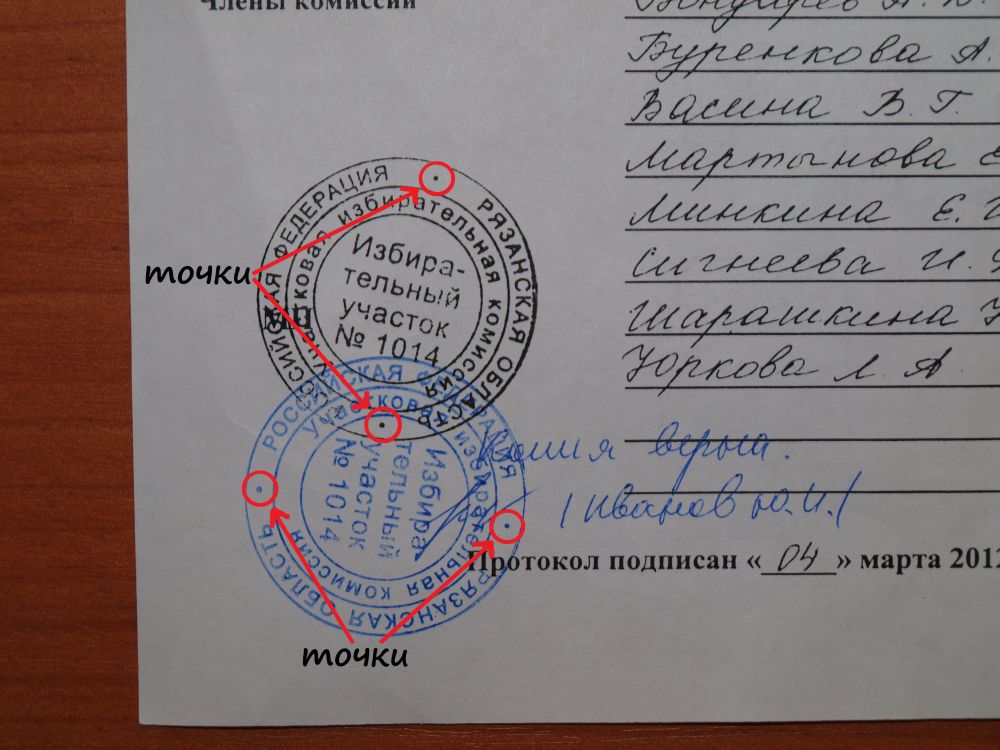 Члены комиссии
Бондарев А. В.
Буренкова А.
Васина В. Г.
Мартынова Е
Минкина Е. И
Сигнеева И.
Шарашкина Н
Юркова Л. А.
РОССИЙСКАЯ ФЕДЕРАЦИЯ • РЯЗАНСКАЯ ОБЛАСТЬ •
Участковая избирательная комиссия
Избира-
тельный
участок
№ 1014
МП
точки
РОССИЙСКАЯ ФЕДЕРАЦИЯ • РЯЗАНСКАЯ ОБЛАСТЬ •
Участковая избирательная комиссия
Избира-
тельный
участок
№ 1014
Копия верна.
(Иванов Ю.И.)
Протокол подписан «04» марта 2012
точки